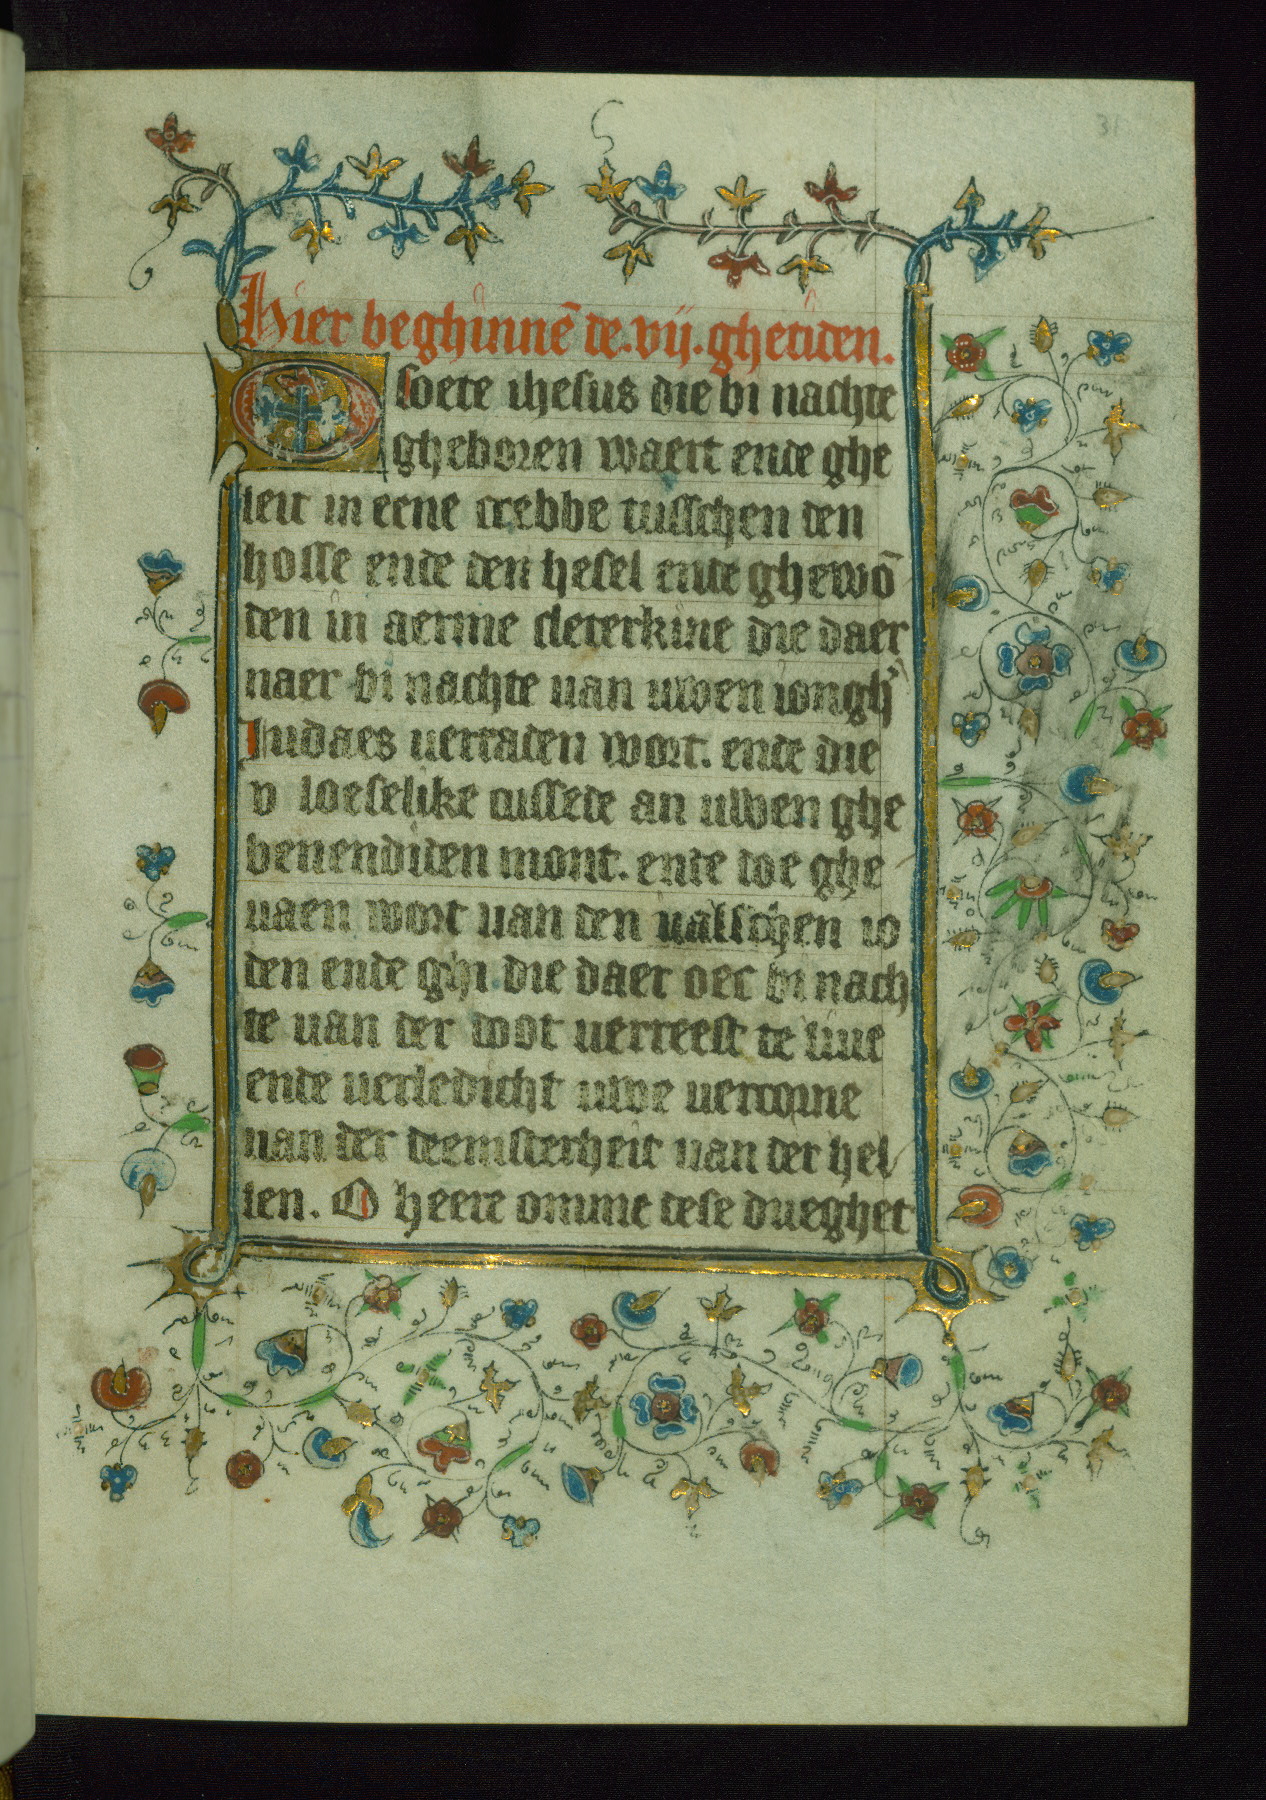 31
Hier beghinnē de .vij. ghetiden.
O soete ihesus die bi nachte
gheboren waert ende ghe
leit in eene crebbe tusschen den
hosse ende den hesel ende ghewō
den in aerme cleterkine die daer
naer bi nachte uan uwen iongh'
Iudaes uerraden wort. ende die
v loeselike cussede an uwen ghe
benendiden mont. ende doe ghe
uaen wort uan den ualschen io
den ende ghi die daer oec bi nach
te uan der doot uerreest te liue
ende uerledicht uwe uercorne
uan der deemsterheit uan der hel
len. O heere omme dese dueghet